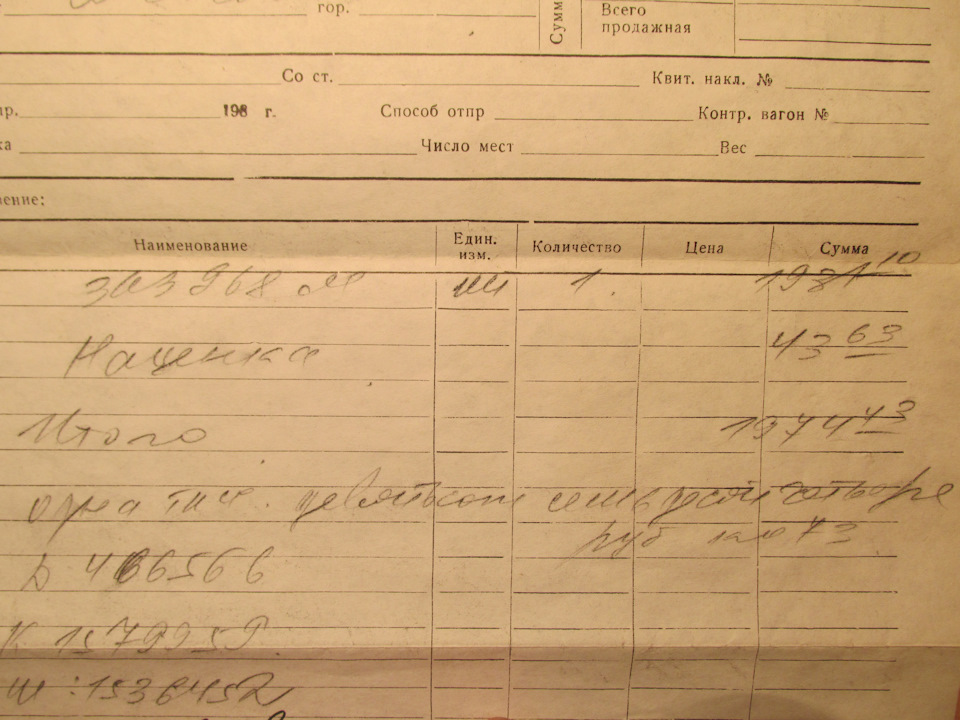 гор.
Сумм
Всего
продажная
Со ст.
Квит. накл. №
пр.
198 г.
Способ отпр
Контр. вагон №
ка
Число мест
Вес
вение:
Наименование Един. изм. Количество Цена Сумма
ЗАЗ 968 М шт 1. 1931 10
Наценка 43 63
Итого 1974 73
одна тыс. девятьсот семьдесят четыре
руб коп 73
Д 466566
К 1579959.
Ш: 1536452